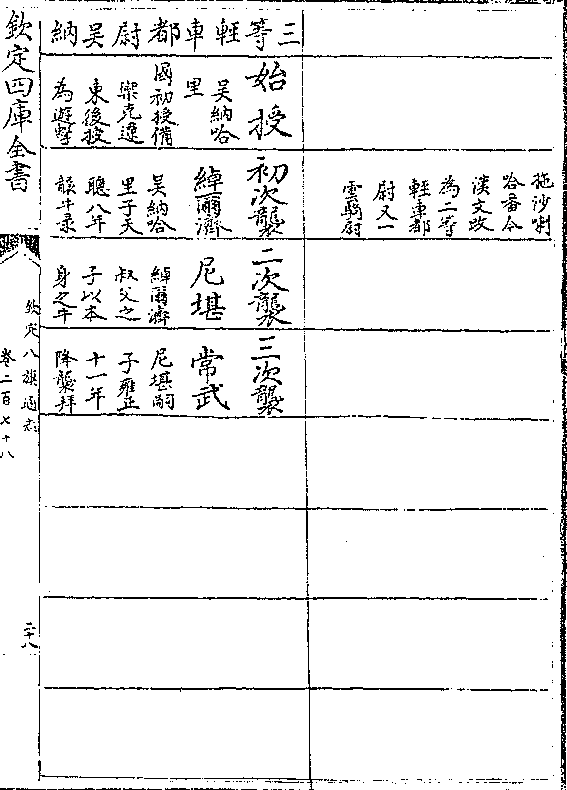 拖沙喇
哈番今
漢文改
為二等
輕車都
尉又一
雲騎尉
三等輕車都尉吳納
始授
吳納哈
里
國初授備
禦克遼
東後授
為遊擊
初次襲
綽爾濟
吳納哈
里子天
聰八年
襲牛录
二次襲
尼堪
綽爾濟
叔父之
子以本
身之牛
三次襲
常武
尼堪嗣
子雍正
十一年
降襲拜
欽定四庫全書
欽定八旗通志
卷二百七十八
二十八